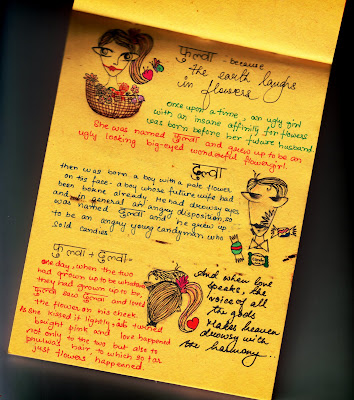 फुल्वा - because
the earth laughs
in flowers
once upon a time, an ugly girl
with an insane affinity for flowers
was born before her future husband
She was named फुल्वा and grew up to be an
ugly looking big-eyed wonderful flowergirl.
दुल्वा
then was born a boy with a pale flower
on his face - a boy whose future wife had
been born already. He had drowsy eyes
and in general an angry disposition, so
was named दुल्वा and he grew up
to be an angry young candyman who
sold candies
फुल्वा + दुल्वा -
one day, when the two
had grown up to be whatever
they had grown up to be,
फुल्वा saw दुल्वा and loved
the flower on his cheek.
As she kissed it lightly, it turned
bright pink and love happened
not only to the two but also to
phulwa's hair to which so far
just 'flowers' happened.
And when love
speaks, the
voice of all
the gods
Makes heaven
drowsy with
the harmony...